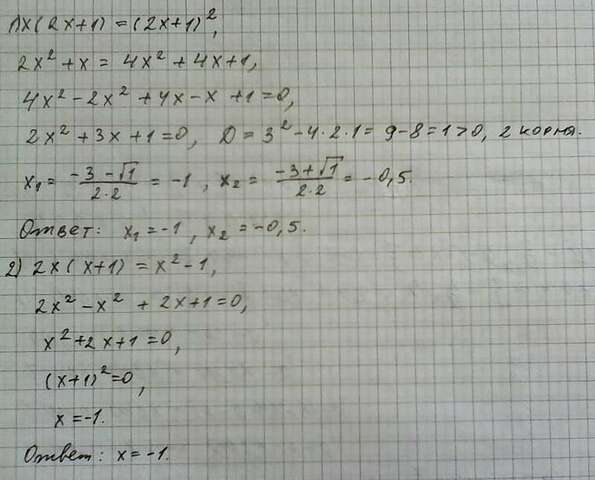 1) x(2x+1) = (2x+1)²,
2x² + x = 4x² + 4x+1,
4x² - 2x² + 4x - x + 1 = 0,
2x² + 3x + 1 = 0, D = 3² - 4·2·1 = 9 - 8 = 1 > 0, 2 корня.
x₁ = (-3 - √1)/(2·2) = -1, x₂ = (-3 + √1)/(2·2) = -0,5.
Ответ: x₁ = -1, x₂ = -0,5.
2) 2x(x+1) = x² - 1,
2x² - x² + 2x + 1 = 0,
x² + 2x + 1 = 0,
(x+1)² = 0,
x = -1.
Ответ: x = -1.